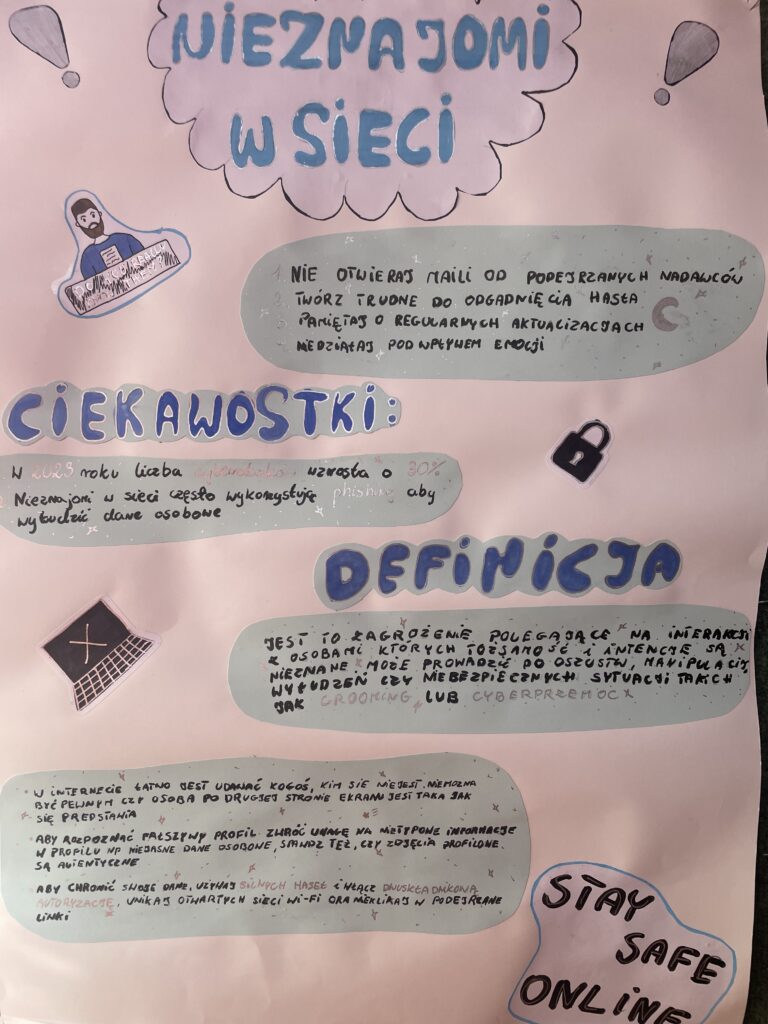 NIEZNAJOMI
W SIECI
1. NIE OTWIERAJ MAILI OD PODEJRZANYCH NADAWCÓW
2. TWÓRZ TRUDNE DO ODGADNIĘCIA HASŁA
3. PAMIĘTAJ O REGULARNYCH AKTUALIZACJACH
NIE DZIAŁAJ POD WPŁYWEM EMOCJI
CIEKAWOSTKI:
W 2023 roku liczba wzrosła o 30%
Nieznajomi w sieci często wykorzystują phishing aby
wyłudzić dane osobowe
DEFINICJA
JEST TO ZAGROŻENIE POLEGAJĄCE NA INTERAKCJI
Z OSOBAMI KTÓRYCH TOŻSAMOŚĆ I INTENCJE SĄ
NIEZNANE MOŻE PROWADZIĆ DO OSZUSTW, MANIPULACJI,
WYŁUDZEŃ CZY NIEBEZPIECZNYCH SYTUACJI TAKICH
JAK GROOMING LUB CYBERPRZEMOC
• W INTERNECIE ŁATWO JEST UDAWAĆ KOGOŚ, KIM SIĘ NIE JEST. NIE MOŻNA
BYĆ PEWNYM CZY OSOBA PO DRUGIEJ STRONIE EKRANU JEST TAKA JAK
SIĘ PRZEDSTAWIA
• ABY ROZPOZNAĆ FAŁSZYWY PROFIL ZWRÓĆ UWAGĘ NA NIETYPOWE INFORMACJE
W PROFILU NP NIEJASNE DANE OSOBOWE, SPRAWDŹ TEŻ, CZY ZDJĘCIA PROFILOWE
SĄ AUTENTYCZNE
• ABY CHRONIĆ SWOJE DANE, UŻYWAJ SILNYCH HASEŁ I WŁĄCZ DWUSKŁADNIKOWĄ
AUTORYZACJĘ, UNIKAJ OTWARTYCH SIECI WI-FI ORAZ NIE KLIKAJ W PODEJRZANE
LINKI
STAY
SAFE
ONLINE